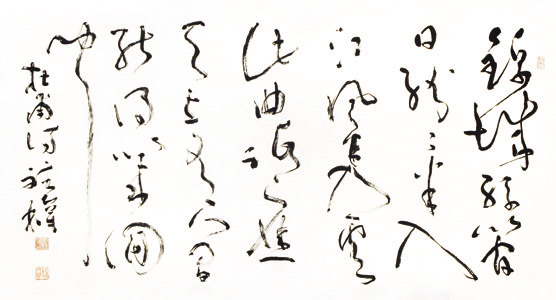 錦城絲管
日紛〻半入
江風半入雲
此曲祗應
天上有人間
能得幾回
聞
杜甫詩